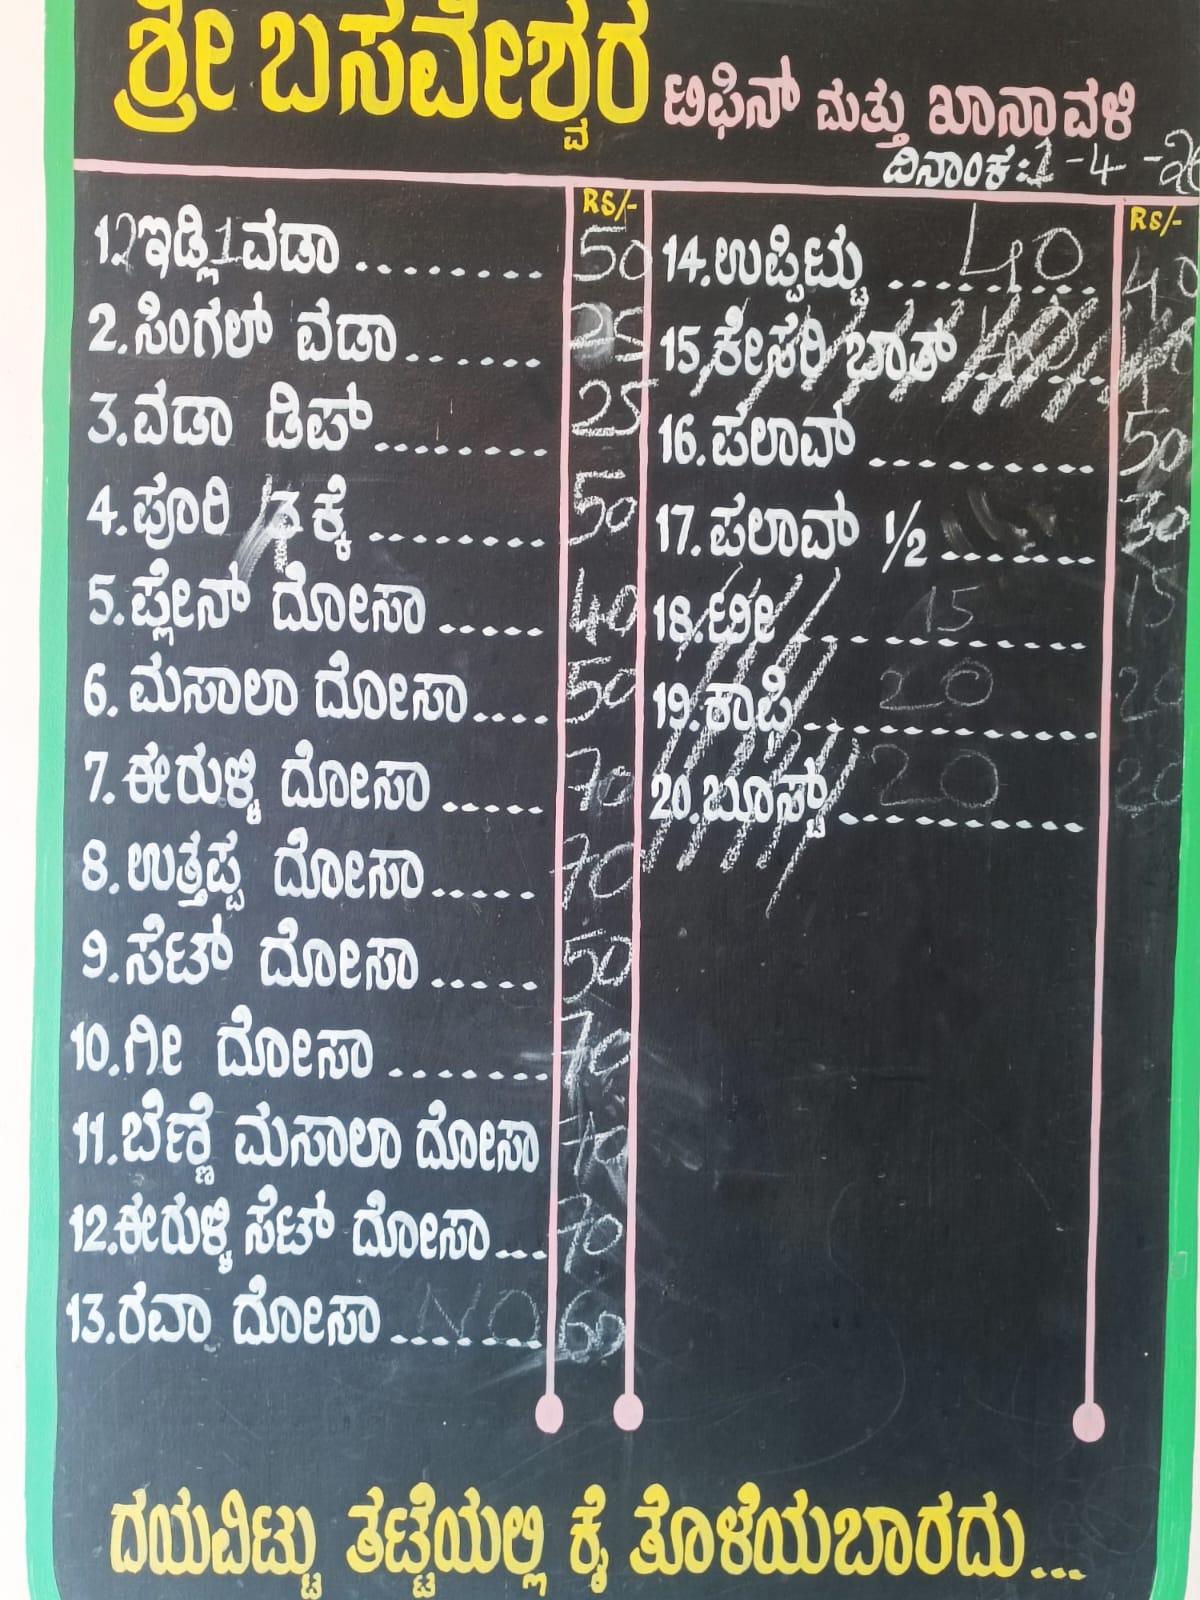 ಶ್ರೀ ಬಸವೇಶ್ವರ ಟಿಫಿನ್ ಮತ್ತು ಖಾನಾವಳಿ
ದಿನಾಂಕ: 1-4-26
RS/-
1. 2 ಇಡ್ಲಿ 1 ವಡಾ ........ 50
2. ಸಿಂಗಲ್ ವಡಾ ....... 25
3. ವಡಾ ಡಿಪ್ ........ 25
4. ಪೂರಿ ಕ್ಕೆ ........ 50
5. ಪ್ಲೇನ್ ದೋಸಾ ...... 40
6. ಮಸಾಲಾ ದೋಸಾ .... 50
7. ಈರುಳ್ಳಿ ದೋಸಾ ..... 70
8. ಉತ್ತಪ್ಪ ದೋಸಾ ..... 70
9. ಸೆಟ್ ದೋಸಾ ..... 50
10. ಗೀ ದೋಸಾ ....... 70
11. ಬೆಣ್ಣೆ ಮಸಾಲಾ ದೋಸಾ 70
12. ಈರುಳ್ಳಿ ಸೆಟ್ ದೋಸಾ ... 70
13. ರವಾ ದೋಸಾ ....... NO 60
RS/-
14. ಉಪ್ಪಿಟ್ಟು ......... 40 40
15. ಕೇಸರಿ ಬಾತ್ ....... 40 40
16. ಪಲಾವ್ .......... 50
17. ಪಲಾವ್ 1/2 ....... 30
18. ಟೀ ............ 15 15
19. ಕಾಫಿ ............ 20 20
20. ಬೂಸ್ಟ್ .......... 20 20
ದಯವಿಟ್ಟು ತಟ್ಟೆಯಲ್ಲಿ ಕೈ ತೊಳೆಯಬಾರದು ...